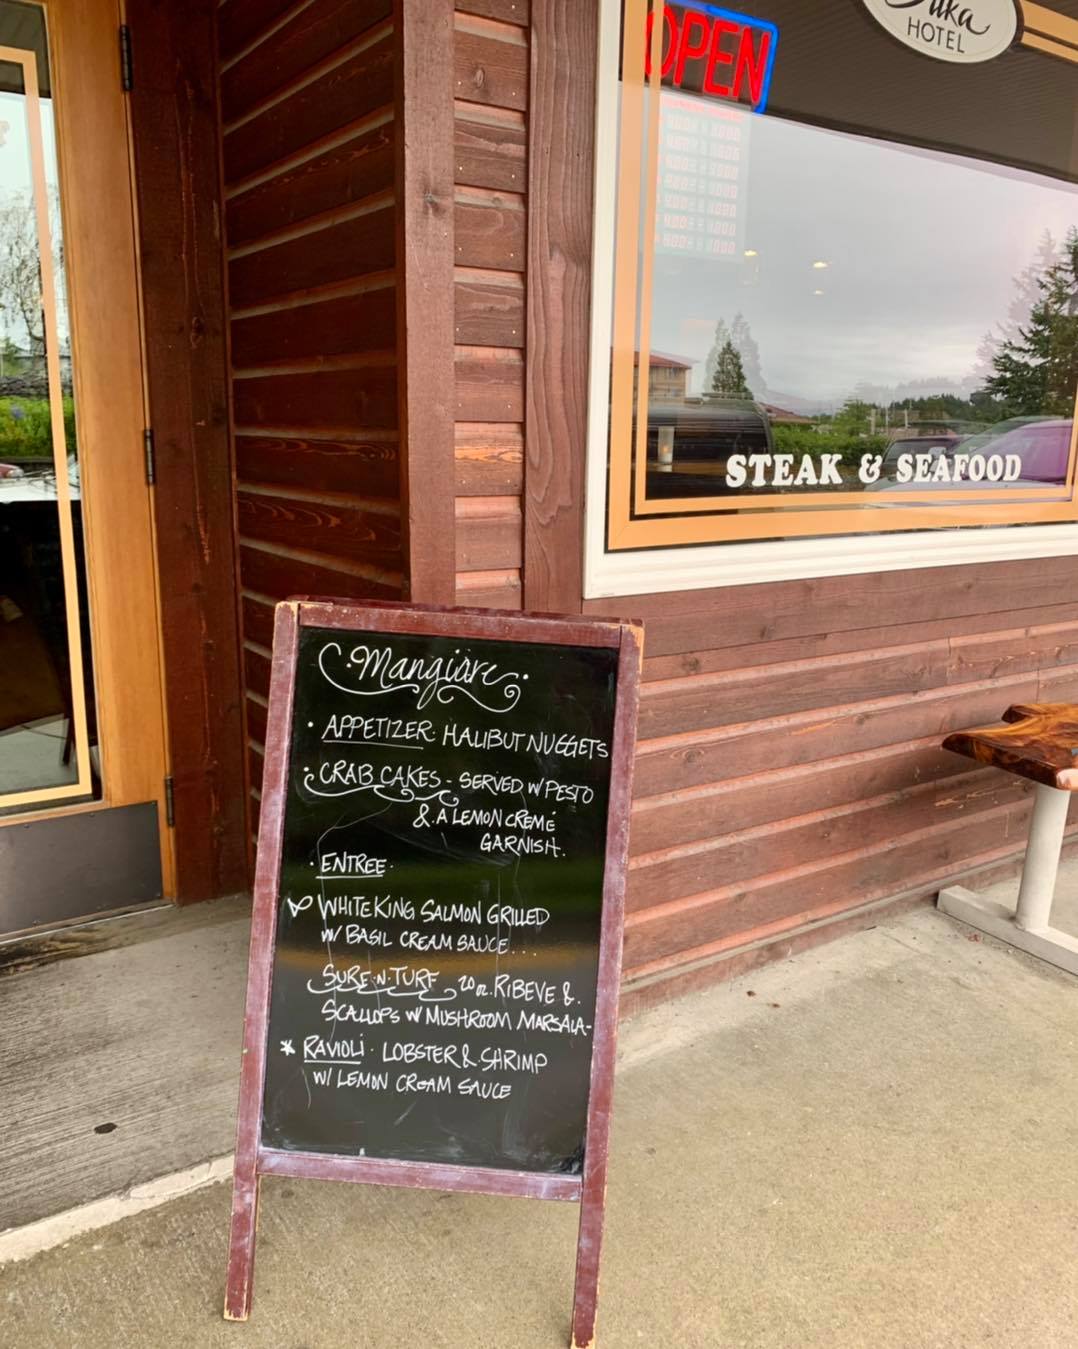 OPEN
HOTEL
STEAK & SEAFOOD
Mangiare
• APPETIZER• HALIBUT NUGGETS
• CRAB CAKES - SERVED W/ PESTO
& A LEMON CREME
GARNISH.
• ENTREE•
WHITE KING SALMON GRILLED
W/ BASIL CREAM SAUCE...
SURE•N•TURF 20 oz. RIBEYE &
SCALLOPS W/ MUSHROOM MARSALA-
* RAVIOLI• LOBSTER & SHRIMP
W/ LEMON CREAM SAUCE